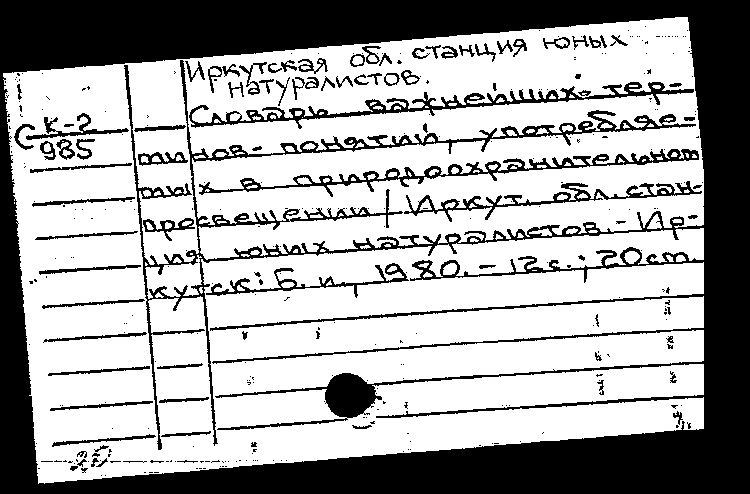 Иркутская обл. станция юных
натуралистов.
Словарь важнейших тер-
С К-2
985
минов-понятий, употребляе-
мых в природоохранительном
просвещении / Иркут. обл. стан-
ция юных натуралистов. - Ир-
кутск: Б. и., 1980. - 12 с.; 20 cm.
20